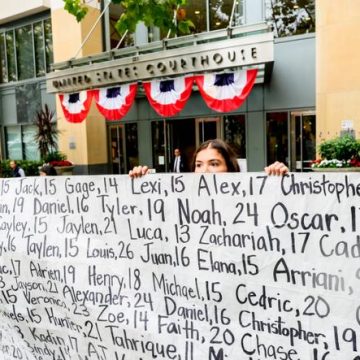 UNITED STATES COURTHOUSE
15 Jack, 15 Gage, 14 Lexi, 15 Alex, 17 Christoph
19 Daniel, 16 Tyler, 19 Noah, 24 Oscar, 1
ayley, 15 Jaylen, 21 Luca, 13 Zachariah, 17 Cad
16 Taylen, 15 Louis, 26 Juan, 16 Elana, 15 Arriani,
17 Adrien, 19 Henry, 18 Michael, 15 Cedric, 20
Jayson, 21 Alexander, 24 Daniel, 16 Christopher, 19
15 Veronica, 23 Zoe, 14 Faith, 20 Chase, 16
15 Hunter, 21 Tahrique, 11
Kadin, 17